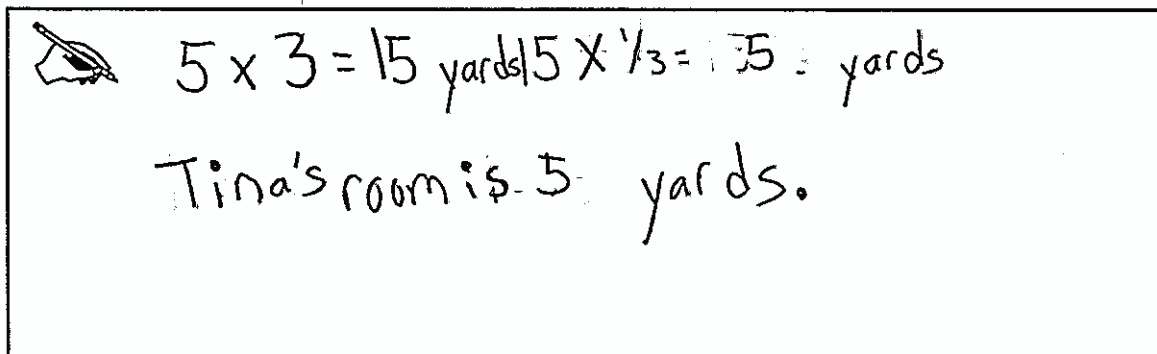 5 x 3 = 15 yards 15 X 1/3 = 5 yards
Tina's room is 5 yards.